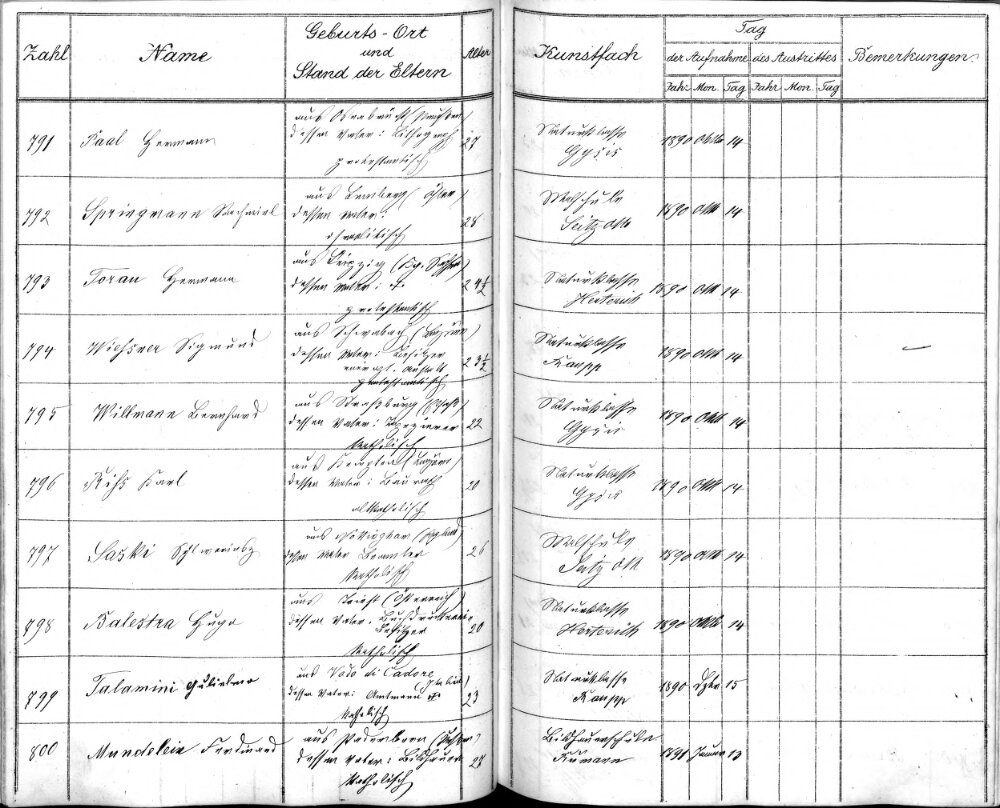 Zahl Name Geburts-Ort und Stand der Eltern Alter Kunstfach Tag der Aufnahme des Austrittes Bemerkungen
Jahr Mon. Tag Jahr Mon. Tag
791 Paal Hermann aus Osnabrück (Preußen) 27 Naturklasse 1890 Okt 14
dessen Vater: Lithograph Gysis
protestantisch
792 Springmann aus Lemberg (Öster) 28 Malschule 1890 Okt 14
dessen Vater: Seitz Otto
israelitisch
793 Toran Hermann aus Leipzig (Kg. Sachsen) 24½ Naturklasse 1890 Okt 14
dessen Vater: † Herterich
protestantisch
794 Wießner Sigmund aus Schwabach (Bayern) 23½ Naturklasse 1890 Okt 14 —
dessen Vater: Besitzer Raupp
Anstalt
protestantisch
795 Willmann Bernhard aus Straßburg (Elsaß) 22 Naturklasse 1890 Okt 14
dessen Vater: Tapezierer Gysis
katholisch
796 Karl aus Kempten (Bayern) 20 Naturklasse 1890 Okt 14
dessen Vater: Baurath Gysis
altkatholisch
797 Saski aus 26 Malschule 1890 Okt 14
dessen Vater Beamter Seitz Otto
katholisch
798 Balestra Hugo aus Triest (Österreich) 20 Naturklasse 1890 Okt 14
dessen Vater: Buchdruckerei- Herterich
besitzer
katholisch
799 Talamini Gulielmo aus Vodo di Cadore Italien 23 Naturklasse 1890 Dzbr 15
dessen Vater: Raupp
katholisch
800 Mundelein Ferdinand aus Paderborn 27 Bildhauerschule 1891 Januar 13
dessen Vater: Bildhauer Rümann
katholisch